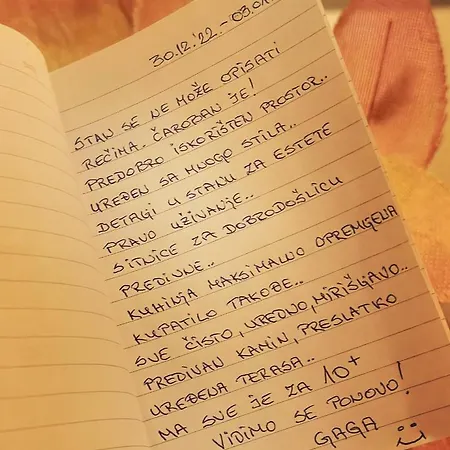 30.12.'22.-03.01
STAN SE NE MOŽE OPISATI
REČIMA. ČAROBAN JE!
PREDOBRO ISKORIŠTEN PROSTOR..
UREĐEN SA MNOGO STILA..
DETALJI U STANU ZA ESTETE
PRAVO UŽIVANJE..
SITNICE ZA DOBRODOŠLICU
PREDIVNE..
KUHINJA MAKSIMALNO OPREMLJENA
KUPATILO TAKOĐE..
SVE ČISTO, UREDNO, MIRIŠLJAVO..
PREDIVAN KAMIN, PRESLATKO
UREĐENA TERASA..
MA SVE JE ZA 10+
VIDIMO SE PONOVO!
GAGA :)